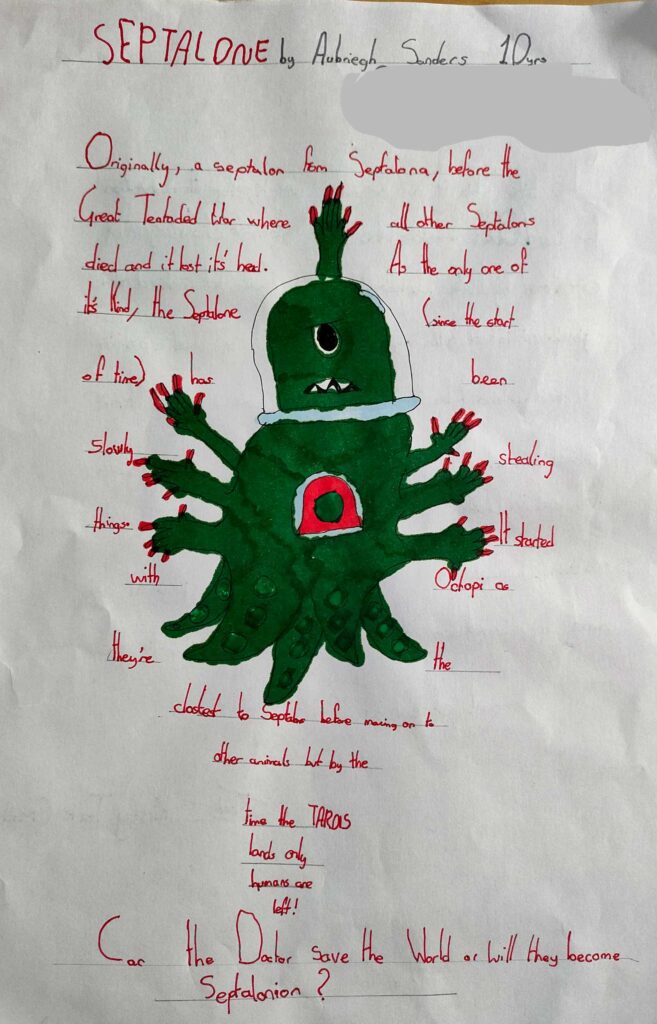 SEPTALONE by Aubriegh Sanders 10yrs
Originally, a septalon from Septalona, before the
Great Tentacled War where all other Septalons
died and it lost it's head. As the only one of
it's Kind, the Septalone (since the start
of time) has been
slowly stealing
things. It started
with Octopi as
they're the
closest to Septalons before moving on to
other animals but by the
time the TARDIS
lands only
humans are
left!
Can the Doctor save the World or will they become
Septalonion?